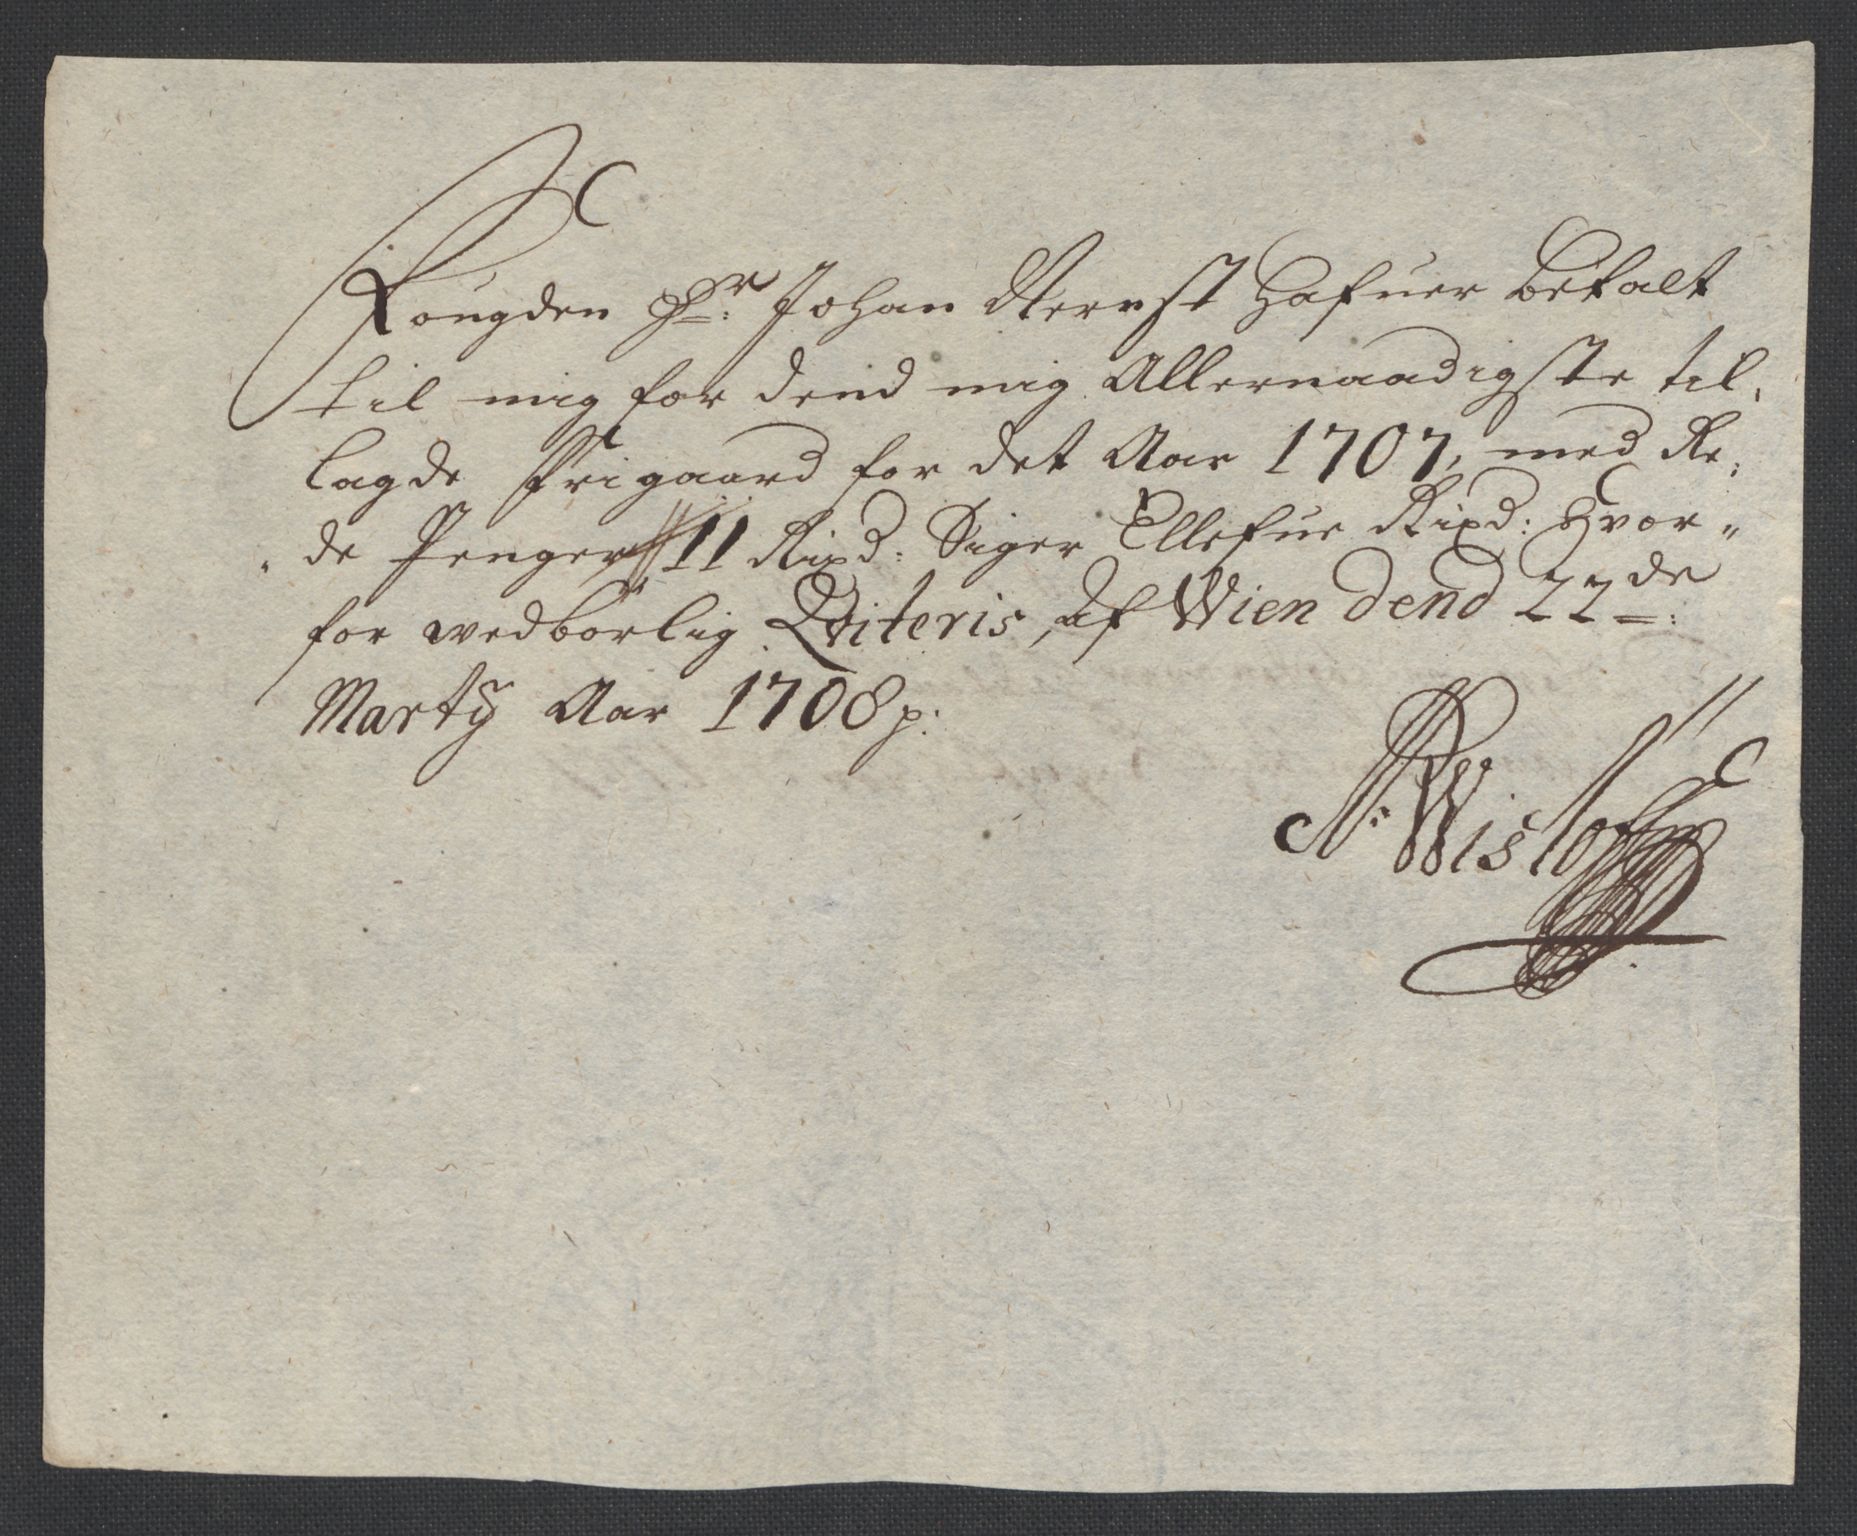 Fougden Hr: Johan Ernst Hafuer betalt
til mig for dend mig Allernaadigste til,
lagde Frigaard for det Aar 1707, med Re,
de Penger 11 Rixd: Siger Ellefue Rixd: Hvor„
for wedbörlig Qviteris, Af Wien dend 22de:
Martÿ Aar 1708 p:
N: Wisloff